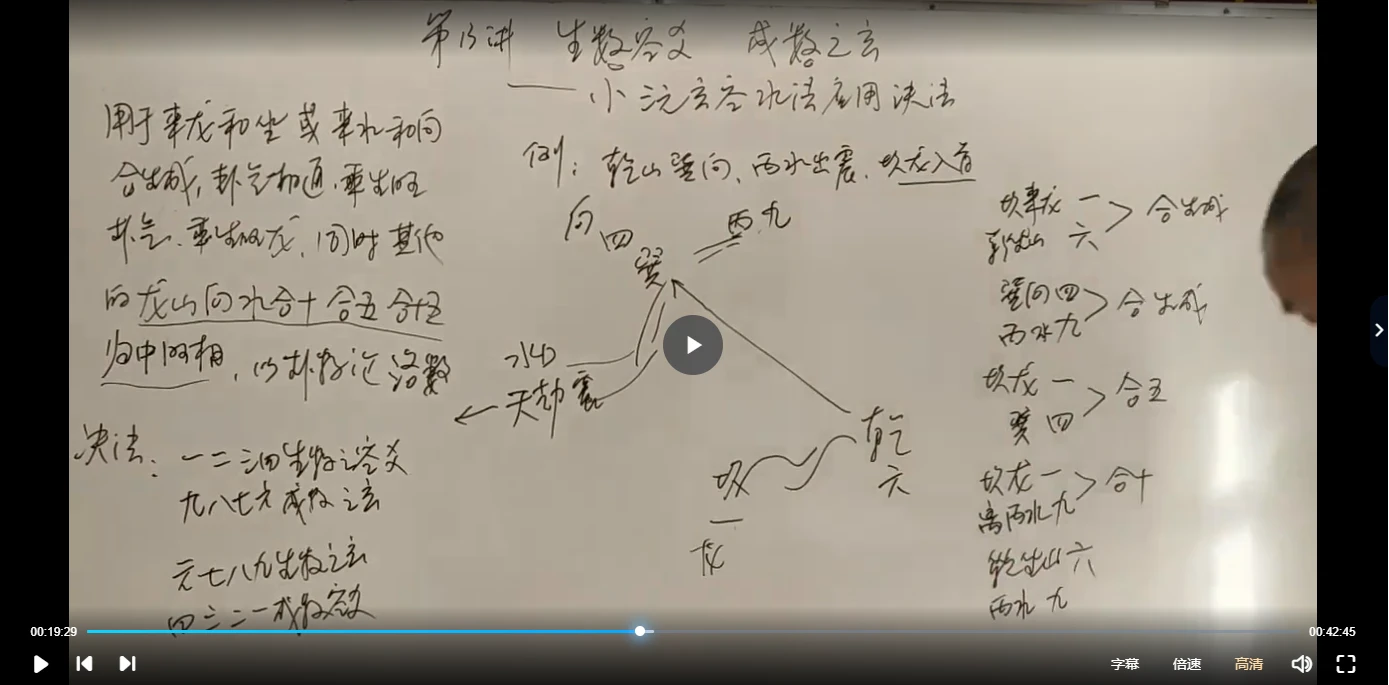 第13讲 生数容爻 成数之玄
——小三元玄空水法应用决法
用于来龙和坐或来水和向
合生成,卦气相通,乘生旺
卦气、乘生旺龙,同时其他
的龙山向水合十合五合十五
为中四相,以卦数论洛数
决法:一二三四生数之容爻
九八七六成数之玄
六七八九生数之玄
四三二一成数容爻
例:乾山巽向、丙水出震、坎龙入首
向 四 丙九
巽
水口
天劫 震
乾
六
坎
一
龙
坎来龙 一
乾坐山 六 合生成
巽向 四
丙水 九 合生成
坎龙 一
巽 四 合五
坎龙 一
离丙水 九 合十
乾坐山 六
丙水 九
00:19:29
00:42:45
字幕 倍速 高清